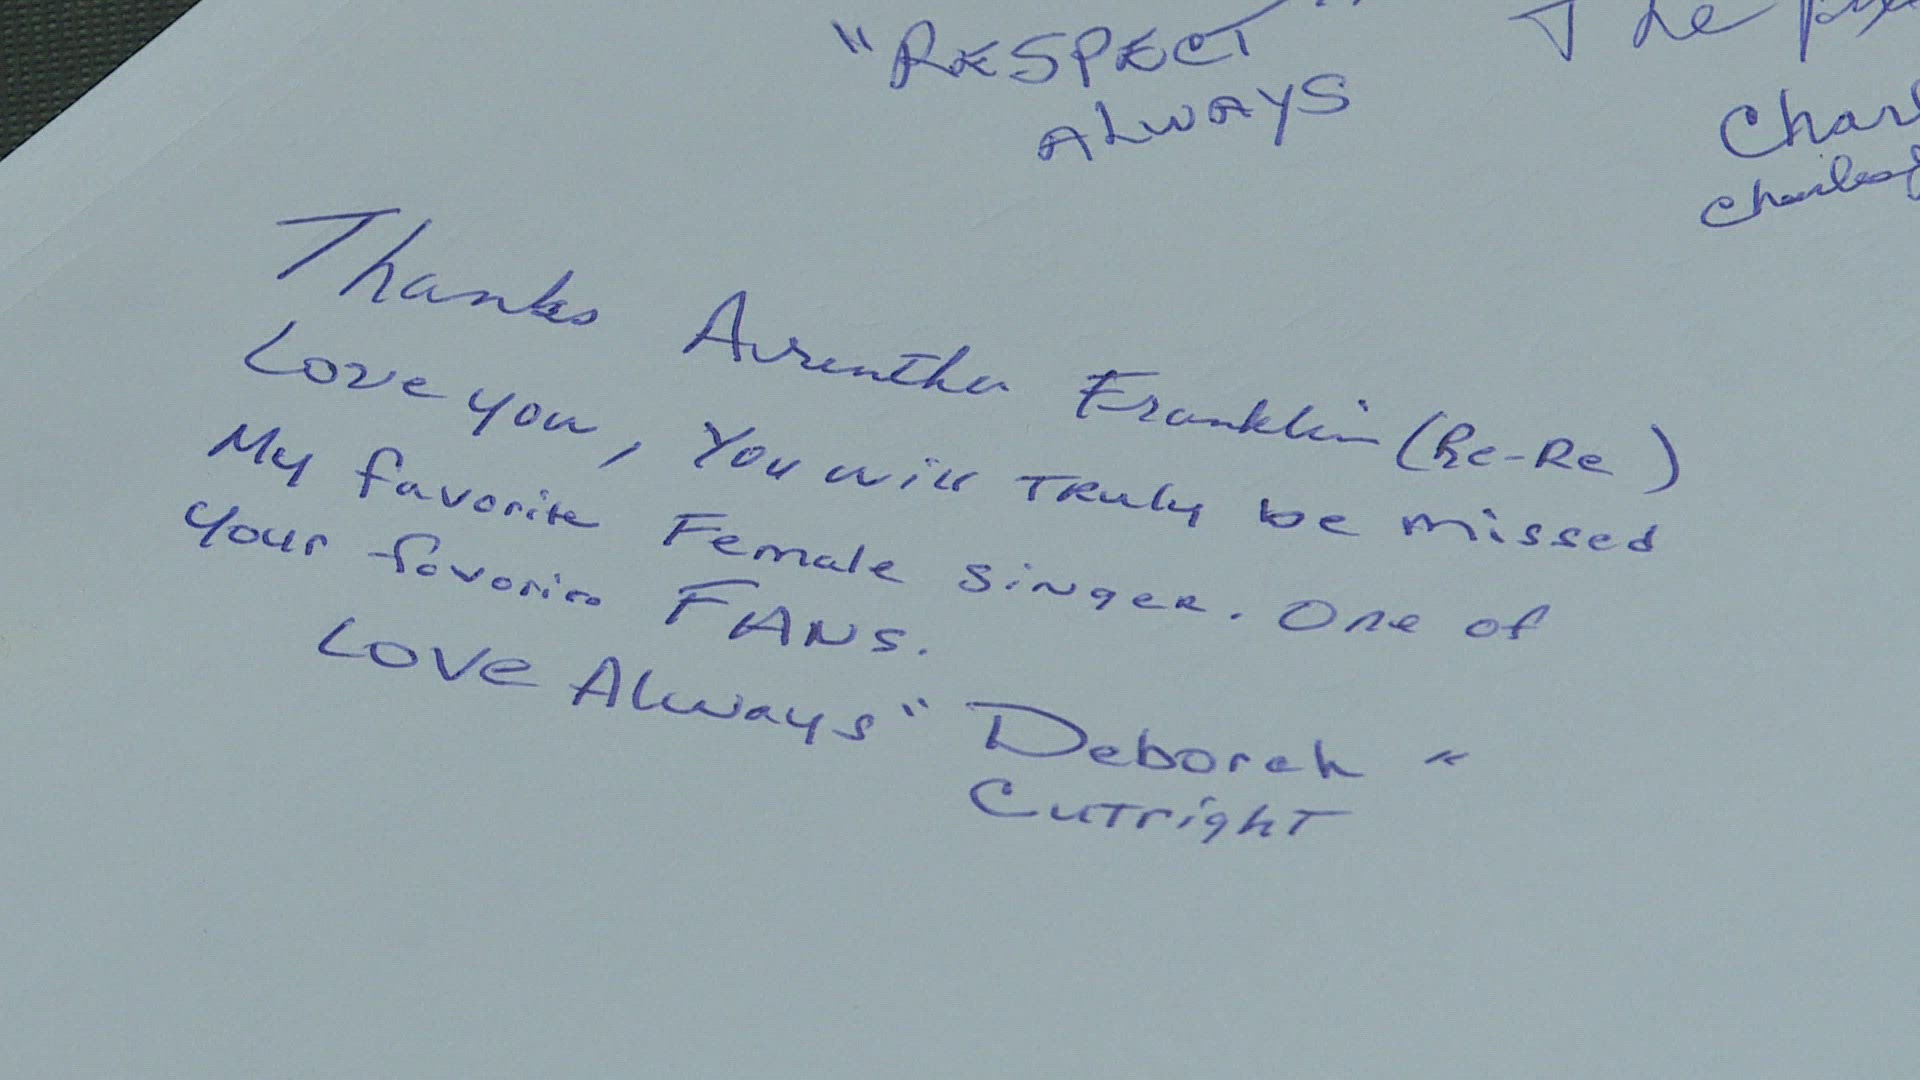 "RESPECT"
ALWAYS
The
Charl
Thanks Aurentha Franklin (Re-Re)
Love you, You will Truly be missed
My favorite Female singer. One of
your favorite FANS.
Love Always "Deborah"
Cutright